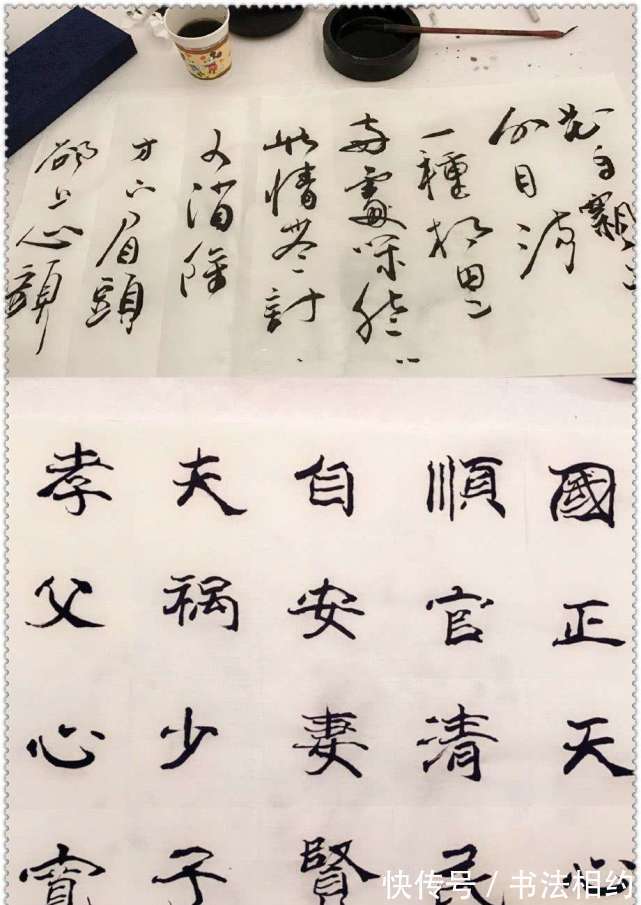 花自飄
水自流
一種相思
兩處
此情無計
消除
才下眉頭
卻上心頭
國正天心
順官清民
自安妻賢
夫禍少子
孝父心寬
快传号 / 书法相约